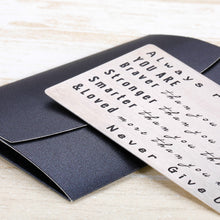 Always
YOU ARE
Braver than you
Stronger than you
Smarter than you
&Loved more than you
Never Give U